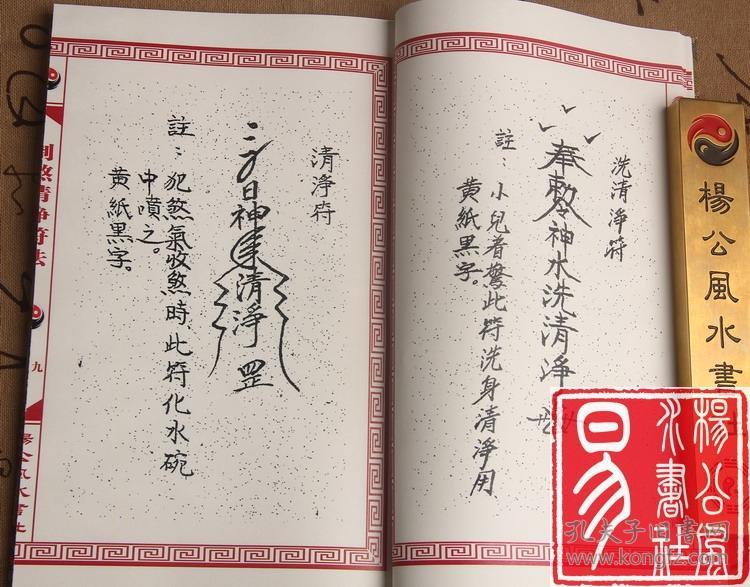 洗清淨符
奉敕令神水洗清淨
註：小兒着驚此符洗身清淨用
黃紙黑字。
清淨符
日神
清淨罡
註：犯煞氣收煞時此符化水碗
中噴之。
黃紙黑字。
制煞清淨符法
九
楊公風水書社
楊公風水書
楊公風水書社
易
孔夫子旧书网
www.kongfz.com